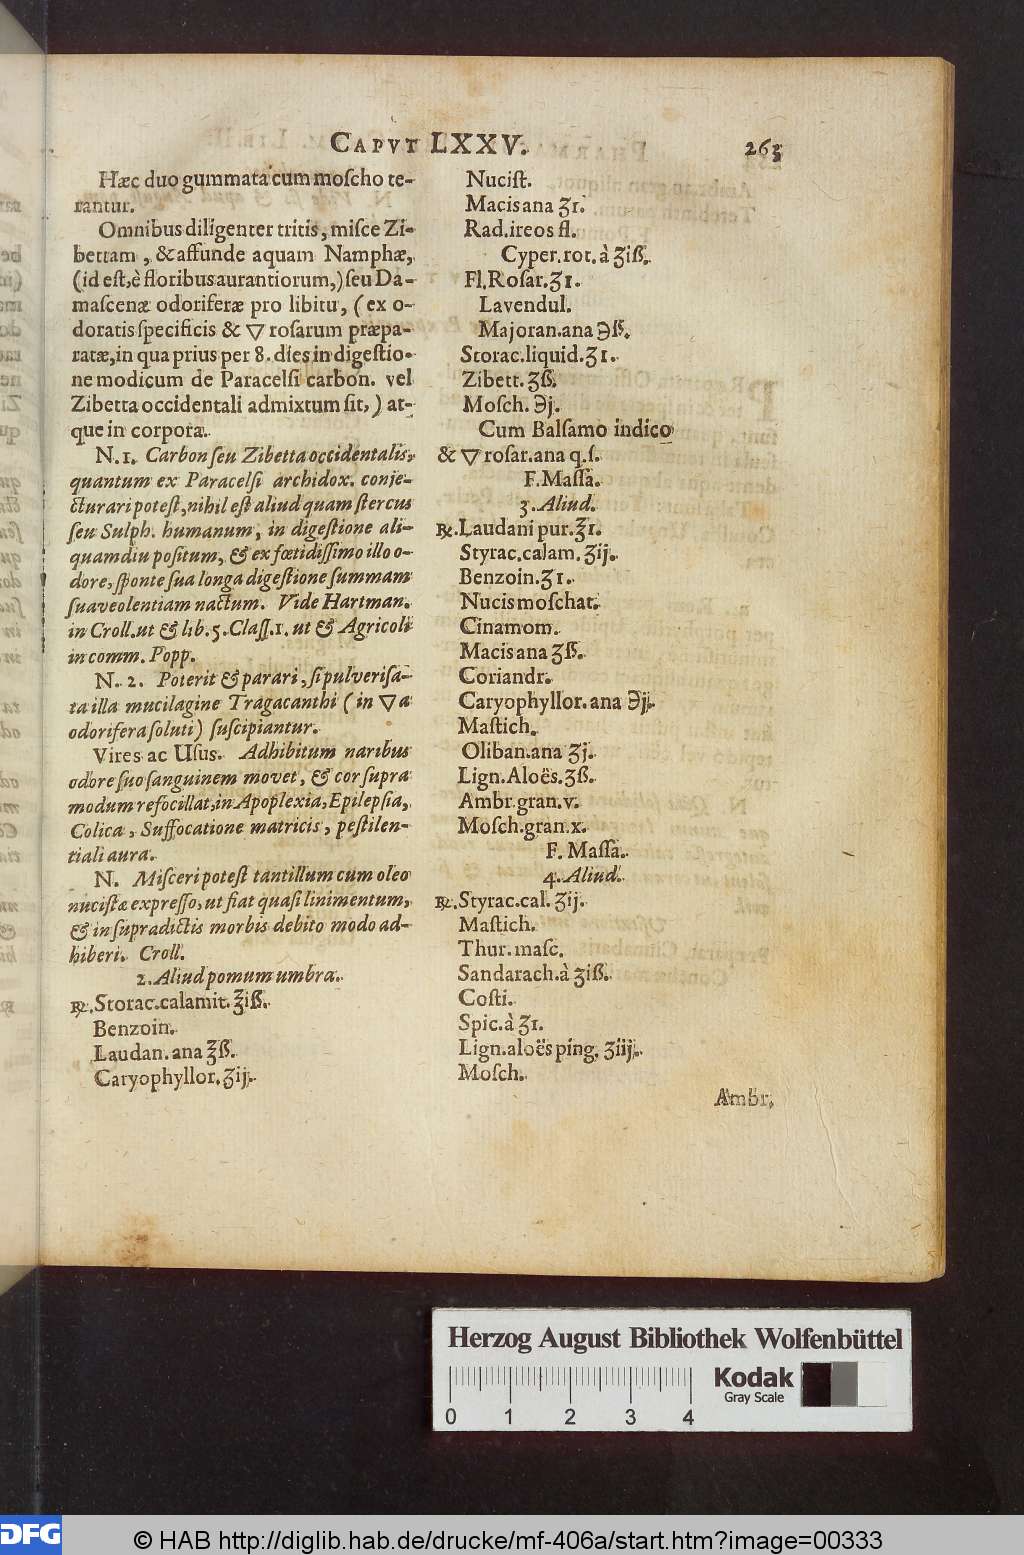 CAPVT LXXV. 263
Hæc duo gummata cum moscho te-
rantur.
Omnibus diligenter tritis, misce Zi-
bettam, & affunde aquam Namphæ,
(id est, è floribus aurantiorum,) seu Da-
mascenæ odoriferæ pro libitu, (ex o-
doratis specificis & ▽ rosarum præpa-
ratæ, in qua prius per 8. dies in digestio-
ne modicum de Paracelsi carbon. vel
Zibetta occidentali admixtum sit,) at-
que in corpora.
N. 1. Carbon seu Zibetta occidentalis,
quantum ex Paracelsi archidox. conje-
cturari potest, nihil est aliud quam stercus
seu Sulph. humanum, in digestione ali-
quamdiu positum, & ex fœtidissimo illo o-
dore, sponte sua longa digestione summam
suaveolentiam nactum. Vide Hartman.
in Croll. ut & lib. 5. Class. 1. ut & Agricolã
in comm. Popp.
N. 2. Poterit & parari, si pulverisa-
ta illa mucilagine Tragacanthi (in ▽a
odorifera soluti) suscipiantur.
Vires ac Usus. Adhibitum naribus
odore suo sanguinem movet, & cor supra
modum refocillat, in Apoplexia, Epilepsia,
Colica, Suffocatione matricis, pestilen-
tiali aura.
N. Misceri potest tantillum cum oleo
nucistæ expresso, ut fiat quasi linimentum,
& in supradictis morbis debito modo ad-
hiberi. Croll.
2. Aliud pomum umbra.
℞. Storac. calamit. ℥iß.
Benzoin.
Laudan. ana ℥ß.
Caryophyllor. ʒij.
Nucist.
Macis ana ʒ1.
Rad. ireos fl.
Cyper. rot. à ʒiß.
Fl. Rosar. ʒ1.
Lavendul.
Majoran. ana ℈ß.
Storac. liquid. ʒ1.
Zibett. ʒß.
Mosch. ℈j.
Cum Balsamo indico
& ▽ rosar. ana q. s.
F. Massa.
3. Aliud.
℞. Laudani pur. ℥1.
Styrac. calam. ʒij.
Benzoin. ʒ1.
Nucis moschat.
Cinamom.
Macis ana ʒß.
Coriandr.
Caryophyllor. ana ℈j.
Mastich.
Oliban. ana ʒj.
Lign. Aloës. ʒß.
Ambr. gran. v.
Mosch. gran. x.
F. Massa.
4. Aliud.
℞. Styrac. cal. ʒij.
Mastich.
Thur. masc.
Sandarach. à ʒiß.
Costi.
Spic. à ʒ1.
Lign. aloës ping. ʒiij.
Mosch.
Ambr.
Herzog August Bibliothek Wolfenbüttel
Kodak
Gray Scale
0 1 2 3 4
DFG
© HAB http://diglib.hab.de/drucke/mf-406a/start.htm?image=00333